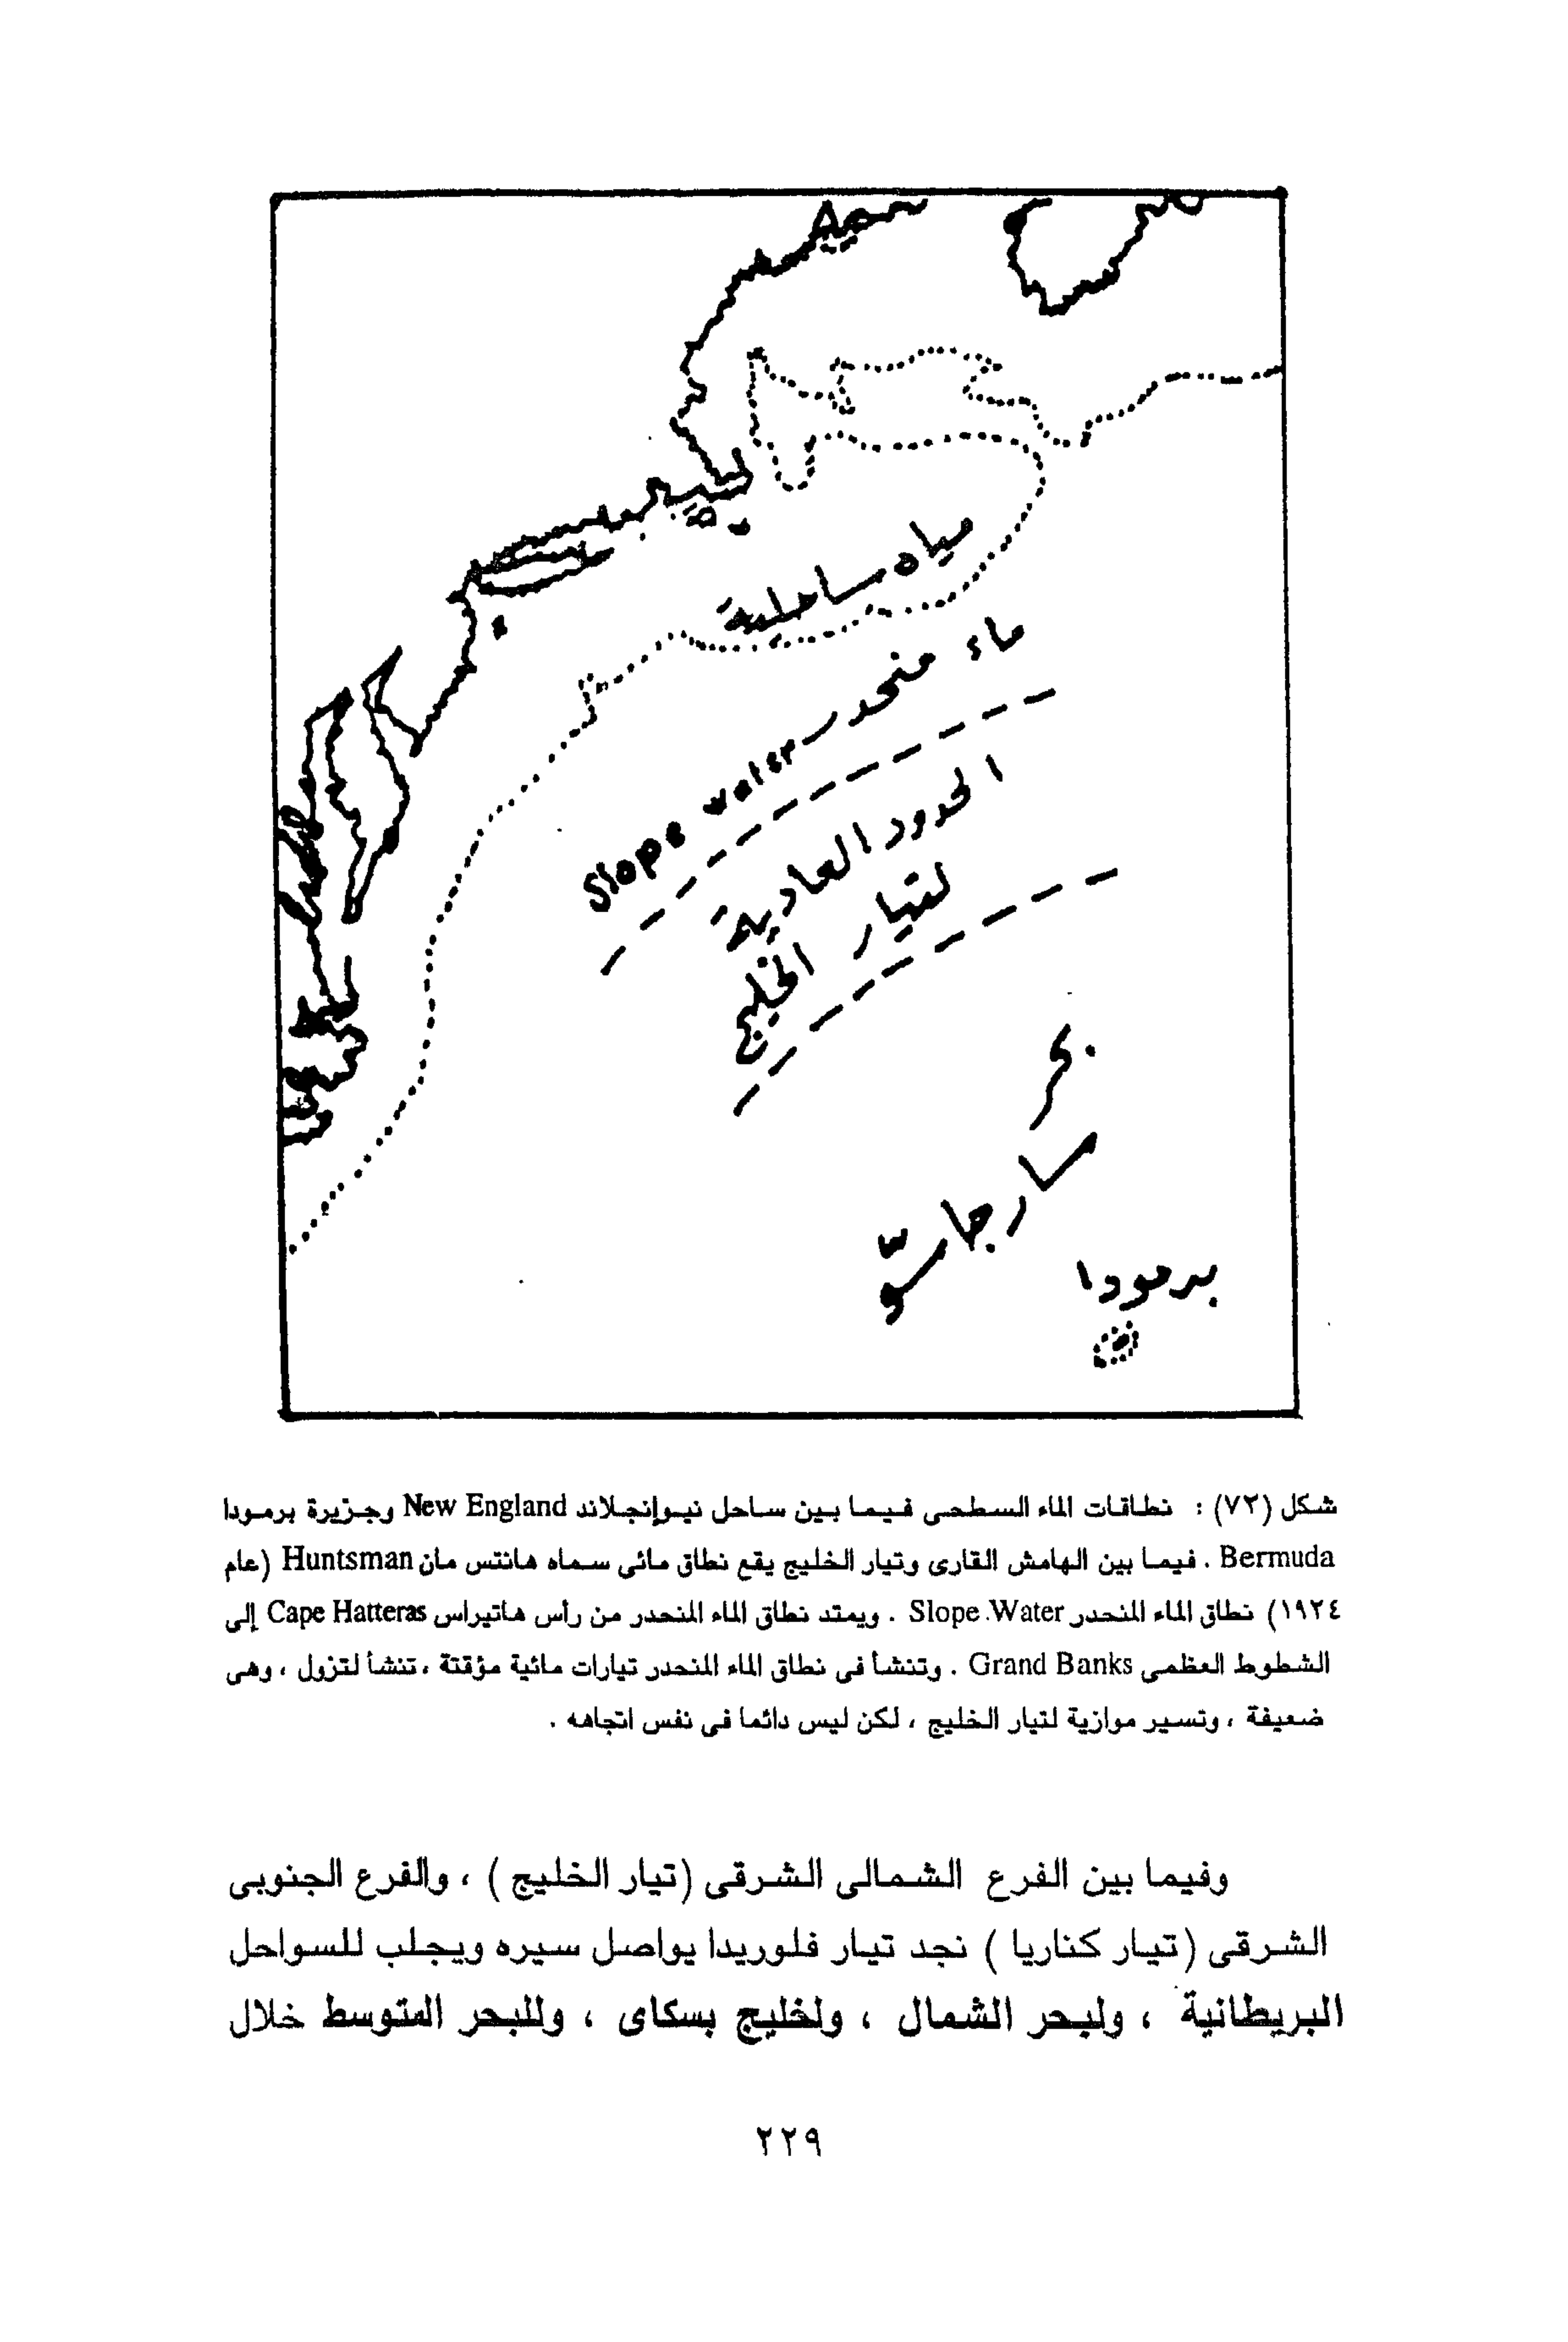 مياه ساحلية
ماء منحدر Slope water
الحدود العادية
لتيار الخليج
بحر
سارجاسّو
برمودا
شكل (٧٢) : نطاقات الماء السطحى فيما بين ساحل نيوإنجلاند New England وجزيرة برمودا
Bermuda . فيما بين الهامش القارى وتيار الخليج يقع نطاق مائى سماه هانتس مان Huntsman (عام
١٩٢٤) نطاق الماء المنحدر Slope .Water . ويمتد نطاق الماء المنحدر من رأس هاتيراس Cape Hatteras إلى
الشطوط العظمى Grand Banks . وتنشأ فى نطاق الماء المنحدر تيارات مائية مؤقتة ، تنشأ لتزول ، وهى
ضعيفة ، وتسير موازية لتيار الخليج ، لكن ليس دائما فى نفس اتجاهه .
وفيما بين الفرع الشمالى الشرقى (تيار الخليج ) ، والفرع الجنوبى
الشرقى (تيار كناريا ) نجد تيار فلوريدا يواصل سيره ويجلب للسواحل
البريطانية ، ولبحر الشمال ، ولخليج بسكاى ، وللبحر المتوسط خلال
٢٢٩